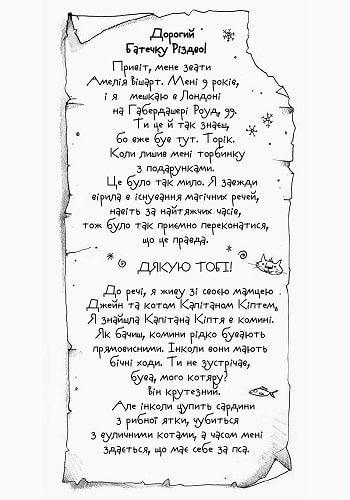 Дорогий
Батечку Різдво!
Привіт, мене звати
Амелія Вішарт. Мені 9 років,
і я мешкаю в Лондоні
на Габердашері Роуд, 99.
Ти це й так знаєш,
бо вже був тут. Торік.
Коли лишив мені торбинку
з подарунками.
Це було так мило. Я завжди
вірила в існування магічних речей,
навіть за найтяжчих часів,
тож було так приємно переконатися,
що це правда.
ДЯКУЮ ТОБІ!
До речі, я живу зі своєю мамцею
Джейн та котом Капітаном Кіптем.
Я знайшла Капітана Кіптя в комині.
Як бачиш, комини рідко бувають
прямовисними. Інколи вони мають
бічні ходи. Ти не зустрічав,
бува, мого котяру?
Він крутезний.
Але інколи цупить сардини
з рибної ятки, чубиться
з вуличними котами, а часом мені
здається, що має себе за пса.